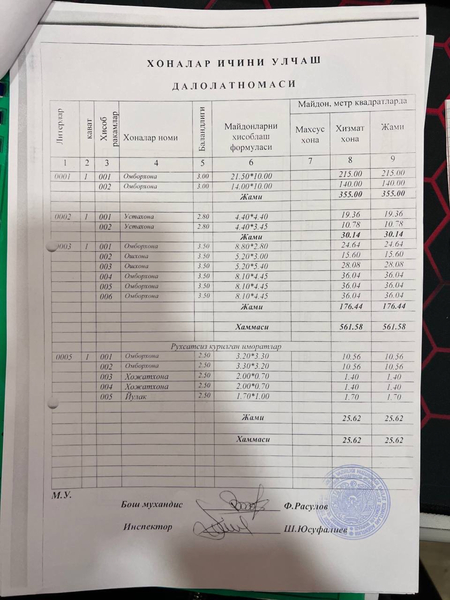 ХОНАЛАР ИЧИНИ УЛЧАШ
ДАЛОЛАТНОМАСИ
Литерлар | кават | Хисоб ракамлар | Хоналар номи | Баландлиги | Майдонларни хисоблаш формуласи | Майдон, метр квадратларда
Махсус хона | Хизмат хона | Жами
1 2 3 4 5 6 7 8 9
0001 1 001 Омборхона 3.00 21.50*10.00 215.00 215.00
002 Омборхона 3.00 14.00*10.00 140.00 140.00
Жами 355.00 355.00
0002 1 001 Устахона 2.80 4.40*4.40 19.36 19.36
002 Устахона 2.80 4.40*3.45 10.78 10.78
Жами 30.14 30.14
0003 1 001 Омборхона 3.50 8.80*2.80 24.64 24.64
002 Ошхона 3.50 5.20*3.00 15.60 15.60
003 Ошхона 3.50 5.20*5.40 28.08 28.08
004 Омборхона 3.50 8.10*4.45 36.04 36.04
005 Омборхона 3.50 8.10*4.45 36.04 36.04
006 Омборхона 3.50 8.10*4.45 36.04 36.04
Жами 176.44 176.44
Хаммаси 561.58 561.58
Рухсатсиз курилган иморатлар
0005 1 001 Омборхона 2.50 3.20*3.30 10.56 10.56
002 Омборхона 2.50 3.30*3.20 10.56 10.56
003 Хожатхона 2.50 2.00*0.70 1.40 1.40
004 Хожатхона 2.50 2.00*0.70 1.40 1.40
005 Йулак 2.50 1.70*1.00 1.70 1.70
Жами 25.62 25.62
Хаммаси 25.62 25.62
М.У.
Бош мухандис Ф.Расулов
Инспектор Ш.Юсуфалиев